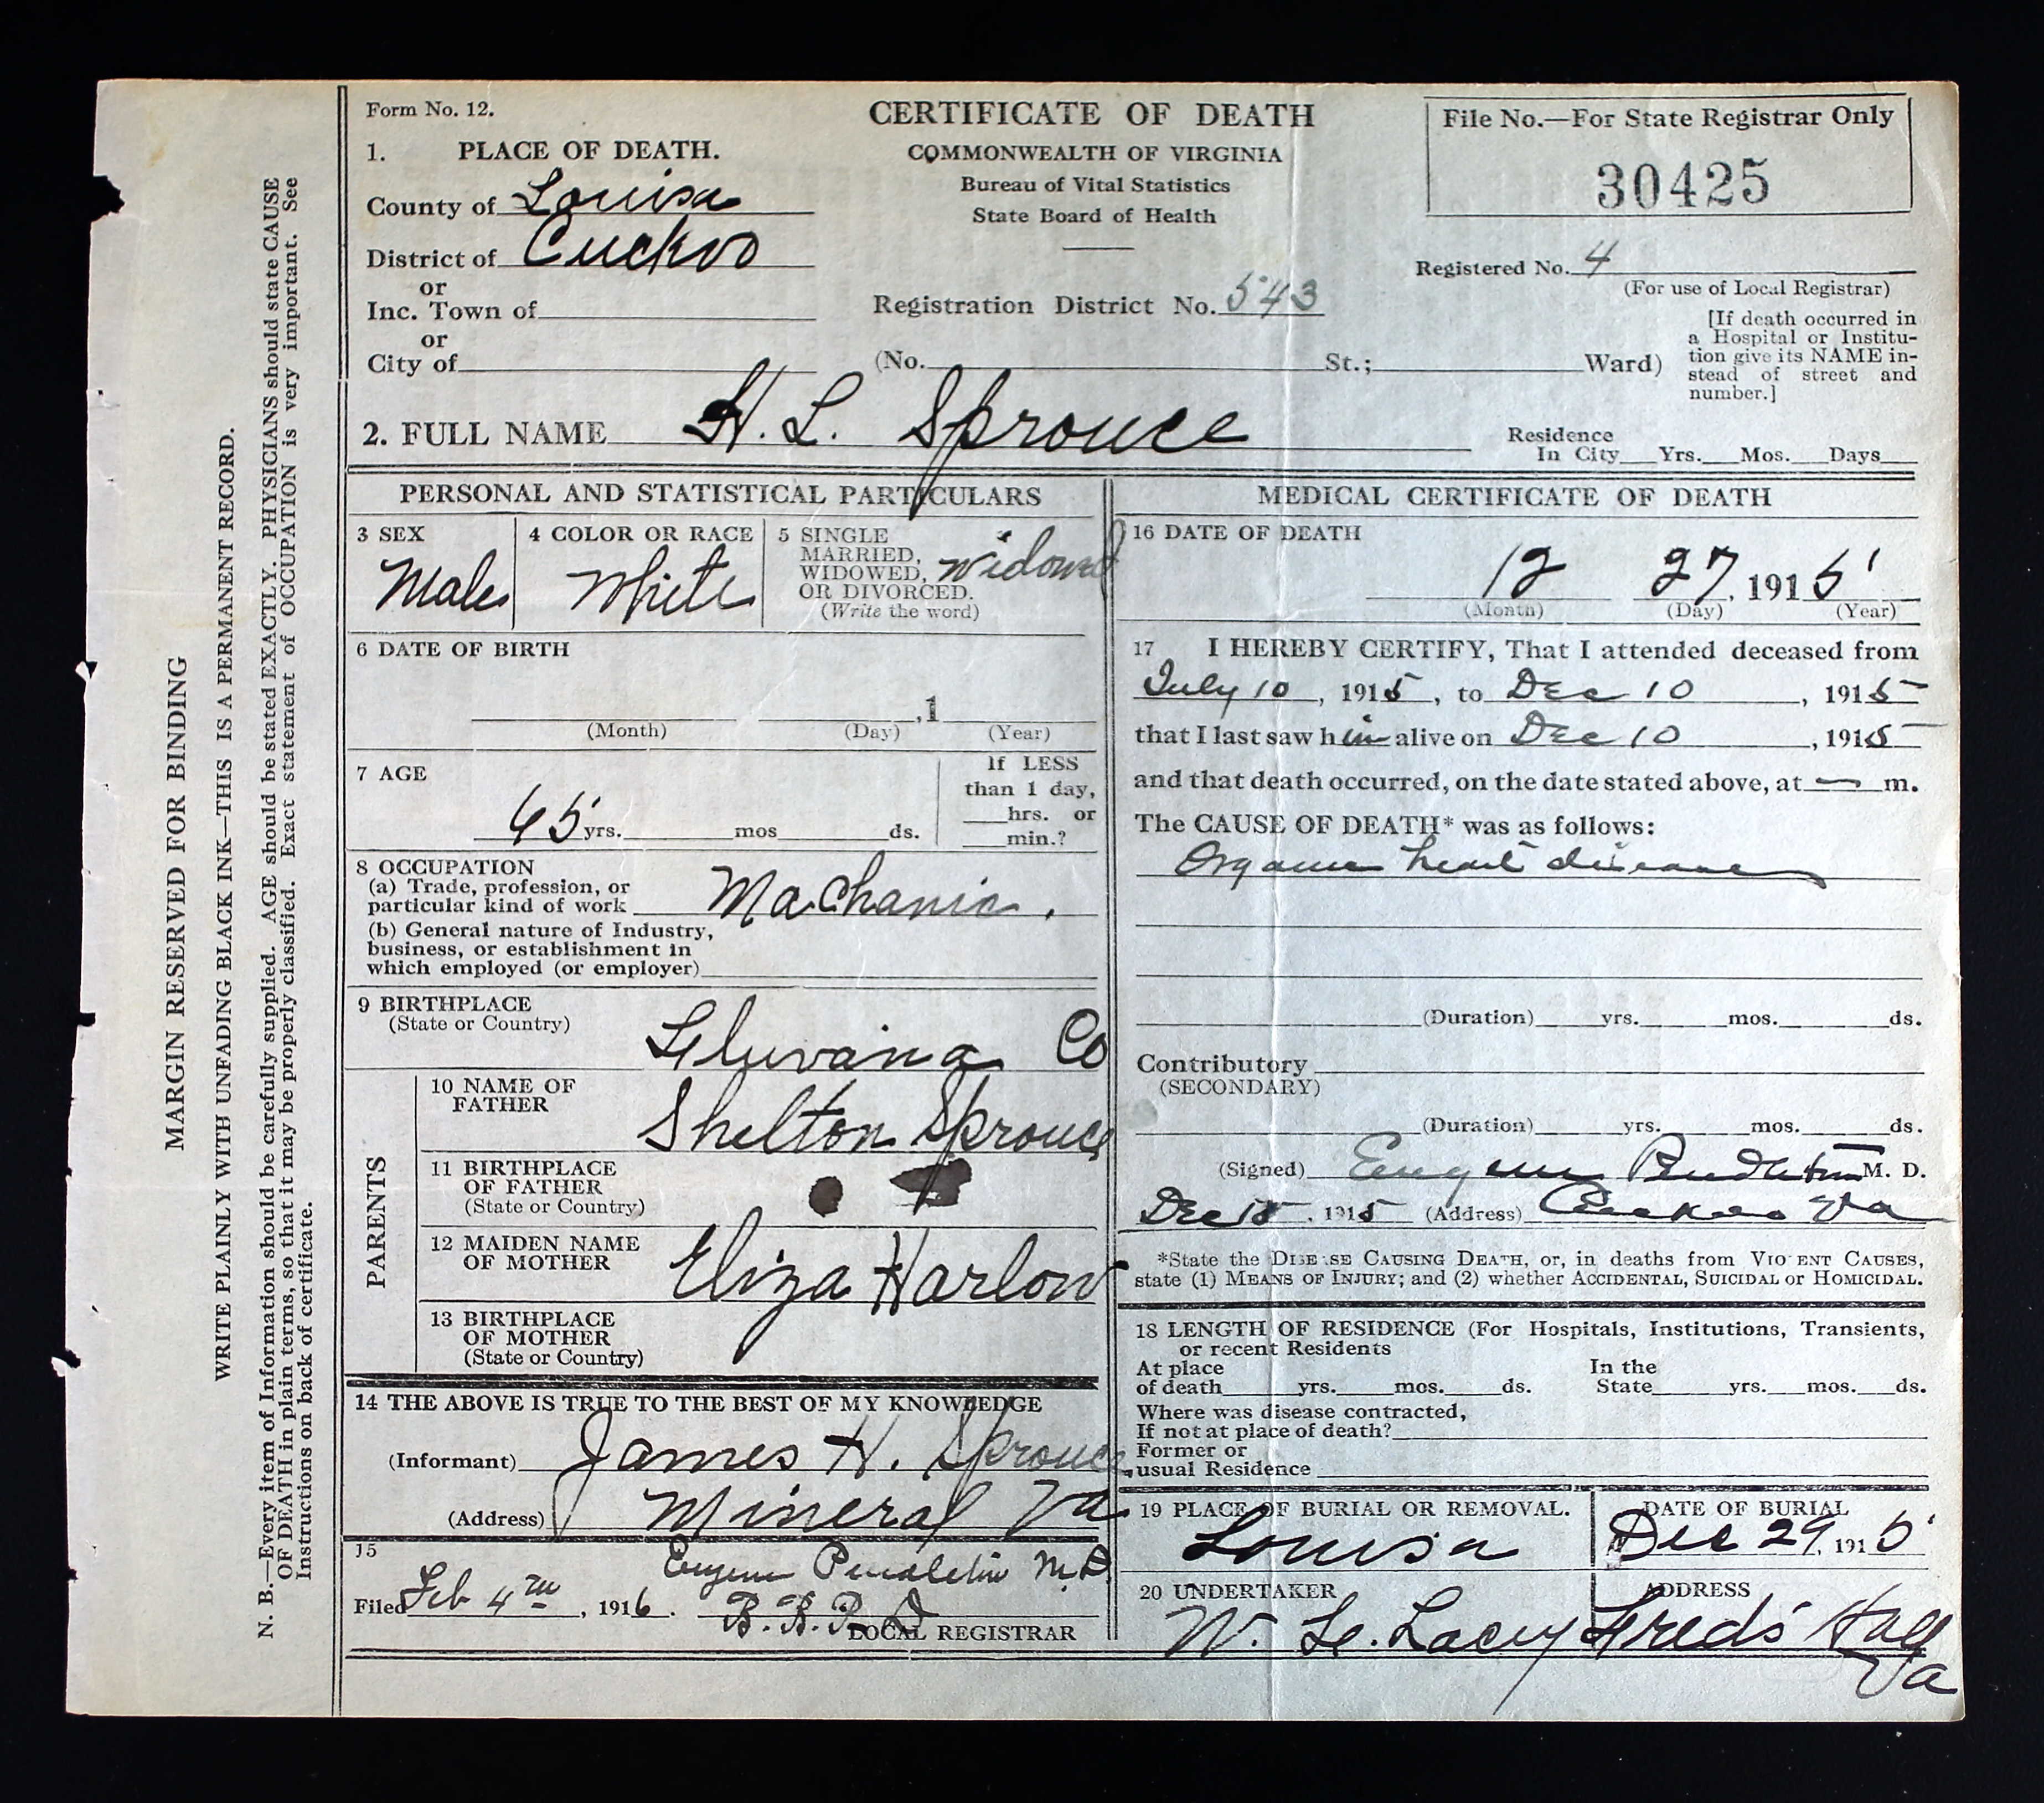 Form No. 12.
CERTIFICATE OF DEATH
COMMONWEALTH OF VIRGINIA
Bureau of Vital Statistics
State Board of Health
File No.—For State Registrar Only
30425
1. PLACE OF DEATH.
County of Louisa
District of Cuckoo
or
Inc. Town of
or
City of
Registration District No. 543
Registered No. 4
(For use of Local Registrar)
(No. St.; Ward)
[If death occurred in
a Hospital or Institu-
tion give its NAME in-
stead of street and
number.]
2. FULL NAME H. L. Sprouce
Residence
In City Yrs. Mos. Days
PERSONAL AND STATISTICAL PARTICULARS
3 SEX
Male
4 COLOR OR RACE
White
5 SINGLE
MARRIED,
WIDOWED,
OR DIVORCED.
(Write the word)
Widowed
6 DATE OF BIRTH
,1
(Month) (Day) (Year)
7 AGE
65 yrs. mos ds.
If LESS
than 1 day,
hrs. or
min.?
8 OCCUPATION
(a) Trade, profession, or
particular kind of work Machanic.
(b) General nature of Industry,
business, or establishment in
which employed (or employer)
9 BIRTHPLACE
(State or Country)
Fluvana Co
PARENTS
10 NAME OF
FATHER
Shelton Sprouce
11 BIRTHPLACE
OF FATHER
(State or Country)
12 MAIDEN NAME
OF MOTHER
Eliza Harlow
13 BIRTHPLACE
OF MOTHER
(State or Country)
14 THE ABOVE IS TRUE TO THE BEST OF MY KNOWLEDGE
(Informant) James H. Sprouce
(Address) Mineral Va
15
Eugene Pendleton M.D.
Filed Feb 4th, 1916.
LOCAL REGISTRAR
MEDICAL CERTIFICATE OF DEATH
16 DATE OF DEATH
12 27, 1915
(Month) (Day) (Year)
17 I HEREBY CERTIFY, That I attended deceased from
July 10, 1915, to Dec 10, 1915
that I last saw him alive on Dec 10, 1915
and that death occurred, on the date stated above, at — m.
The CAUSE OF DEATH* was as follows:
Organic heart disease
(Duration) yrs. mos. ds.
Contributory
(SECONDARY)
(Duration) yrs. mos. ds.
(Signed) Eugene Pendleton M. D.
Dec 15, 1915 (Address) Cuckoo Va
*State the DISEASE CAUSING DEATH, or, in deaths from VIOLENT CAUSES,
state (1) MEANS OF INJURY; and (2) whether ACCIDENTAL, SUICIDAL or HOMICIDAL.
18 LENGTH OF RESIDENCE (For Hospitals, Institutions, Transients,
or recent Residents
At place
of death yrs. mos. ds.
In the
State yrs. mos. ds.
Where was disease contracted,
If not at place of death?
Former or
usual Residence
19 PLACE OF BURIAL OR REMOVAL.
Louisa
DATE OF BURIAL
Dec 29, 1915
20 UNDERTAKER
W. F. Lacey
ADDRESS
Freds Hall
Va
MARGIN RESERVED FOR BINDING
WRITE PLAINLY WITH UNFADING BLACK INK—THIS IS A PERMANENT RECORD.
N. B.—Every item of Information should be carefully supplied. AGE should be stated EXACTLY. PHYSICIANS should state CAUSE
OF DEATH in plain terms, so that it may be properly classified. Exact statement of OCCUPATION is very important. See
Instructions on back of certificate.